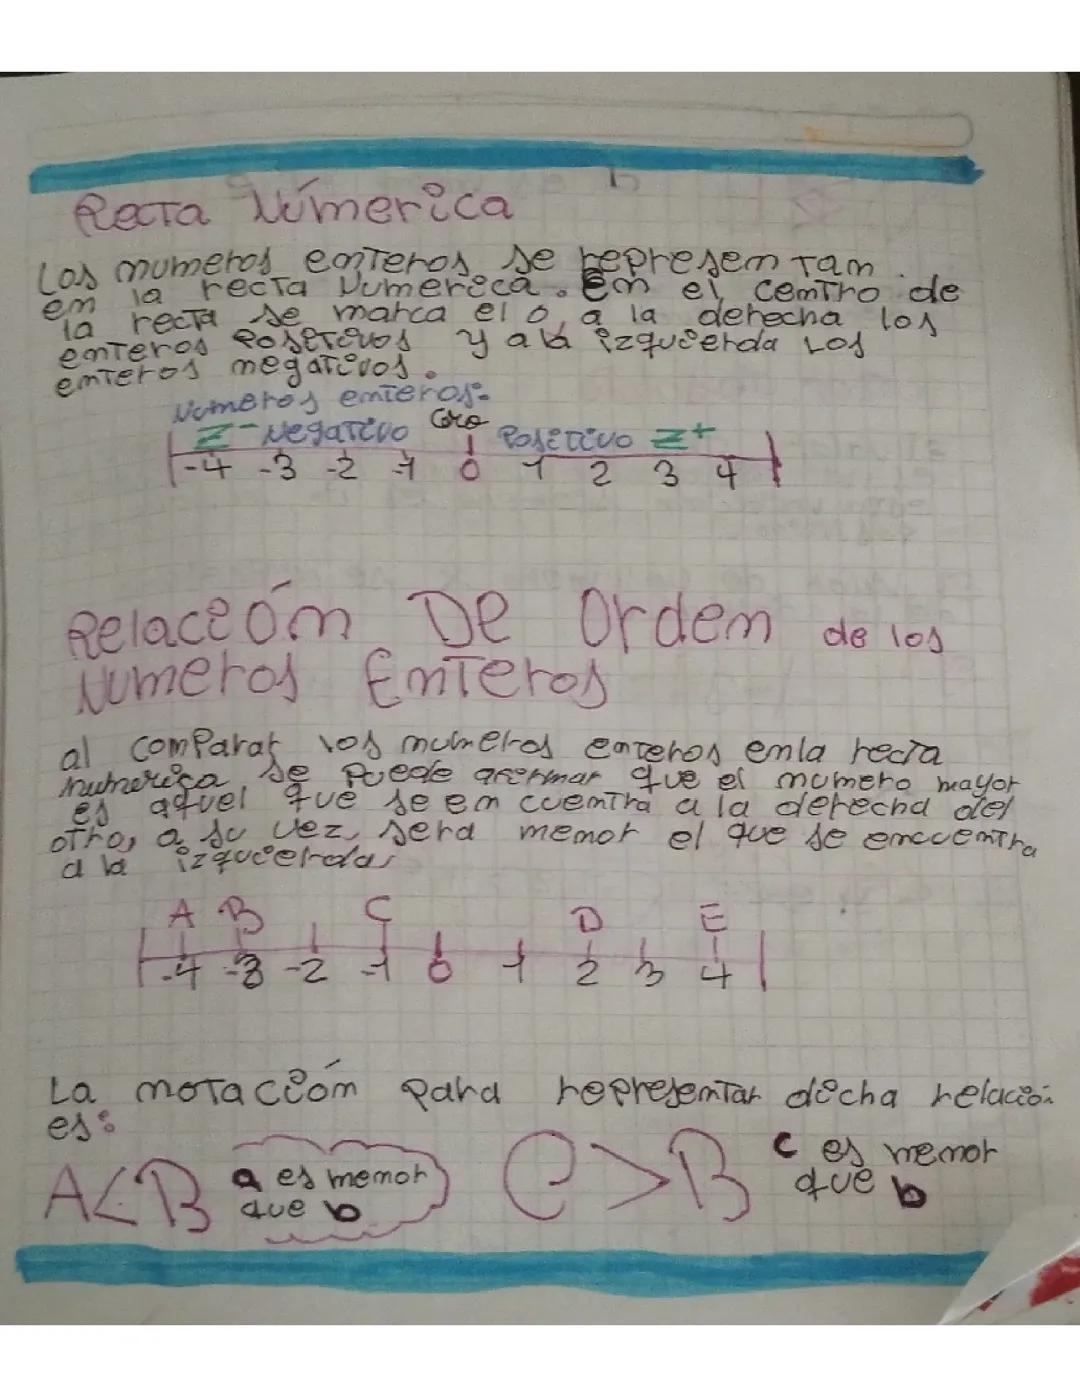 Recta Númerica
Los numeros enteros se representan.
en la recta Numerica. En el centro de
la recta se marca el 0, a la derecha los
enteros Positivos y a la izquierda Los
enteros negativos.
Numeros enteros:
Z- Negativo Cero Positivo Z+
-4 -3 -2 -1 0 1 2 3 4
Relación De Orden de los
Numeros Enteros
al comparar los numeros enteros en la recta
numerica se puede afirmar que el numero mayor
es aquel que se en cuentra a la derecha del
otro, a su vez, sera menor el que se encuentra
a la izquierda
A B C D E
-4 -3 -2 -1 0 1 2 3 4
La notación para representar dicha relación
es:
A<B a es menor que b C>B c es menor que b